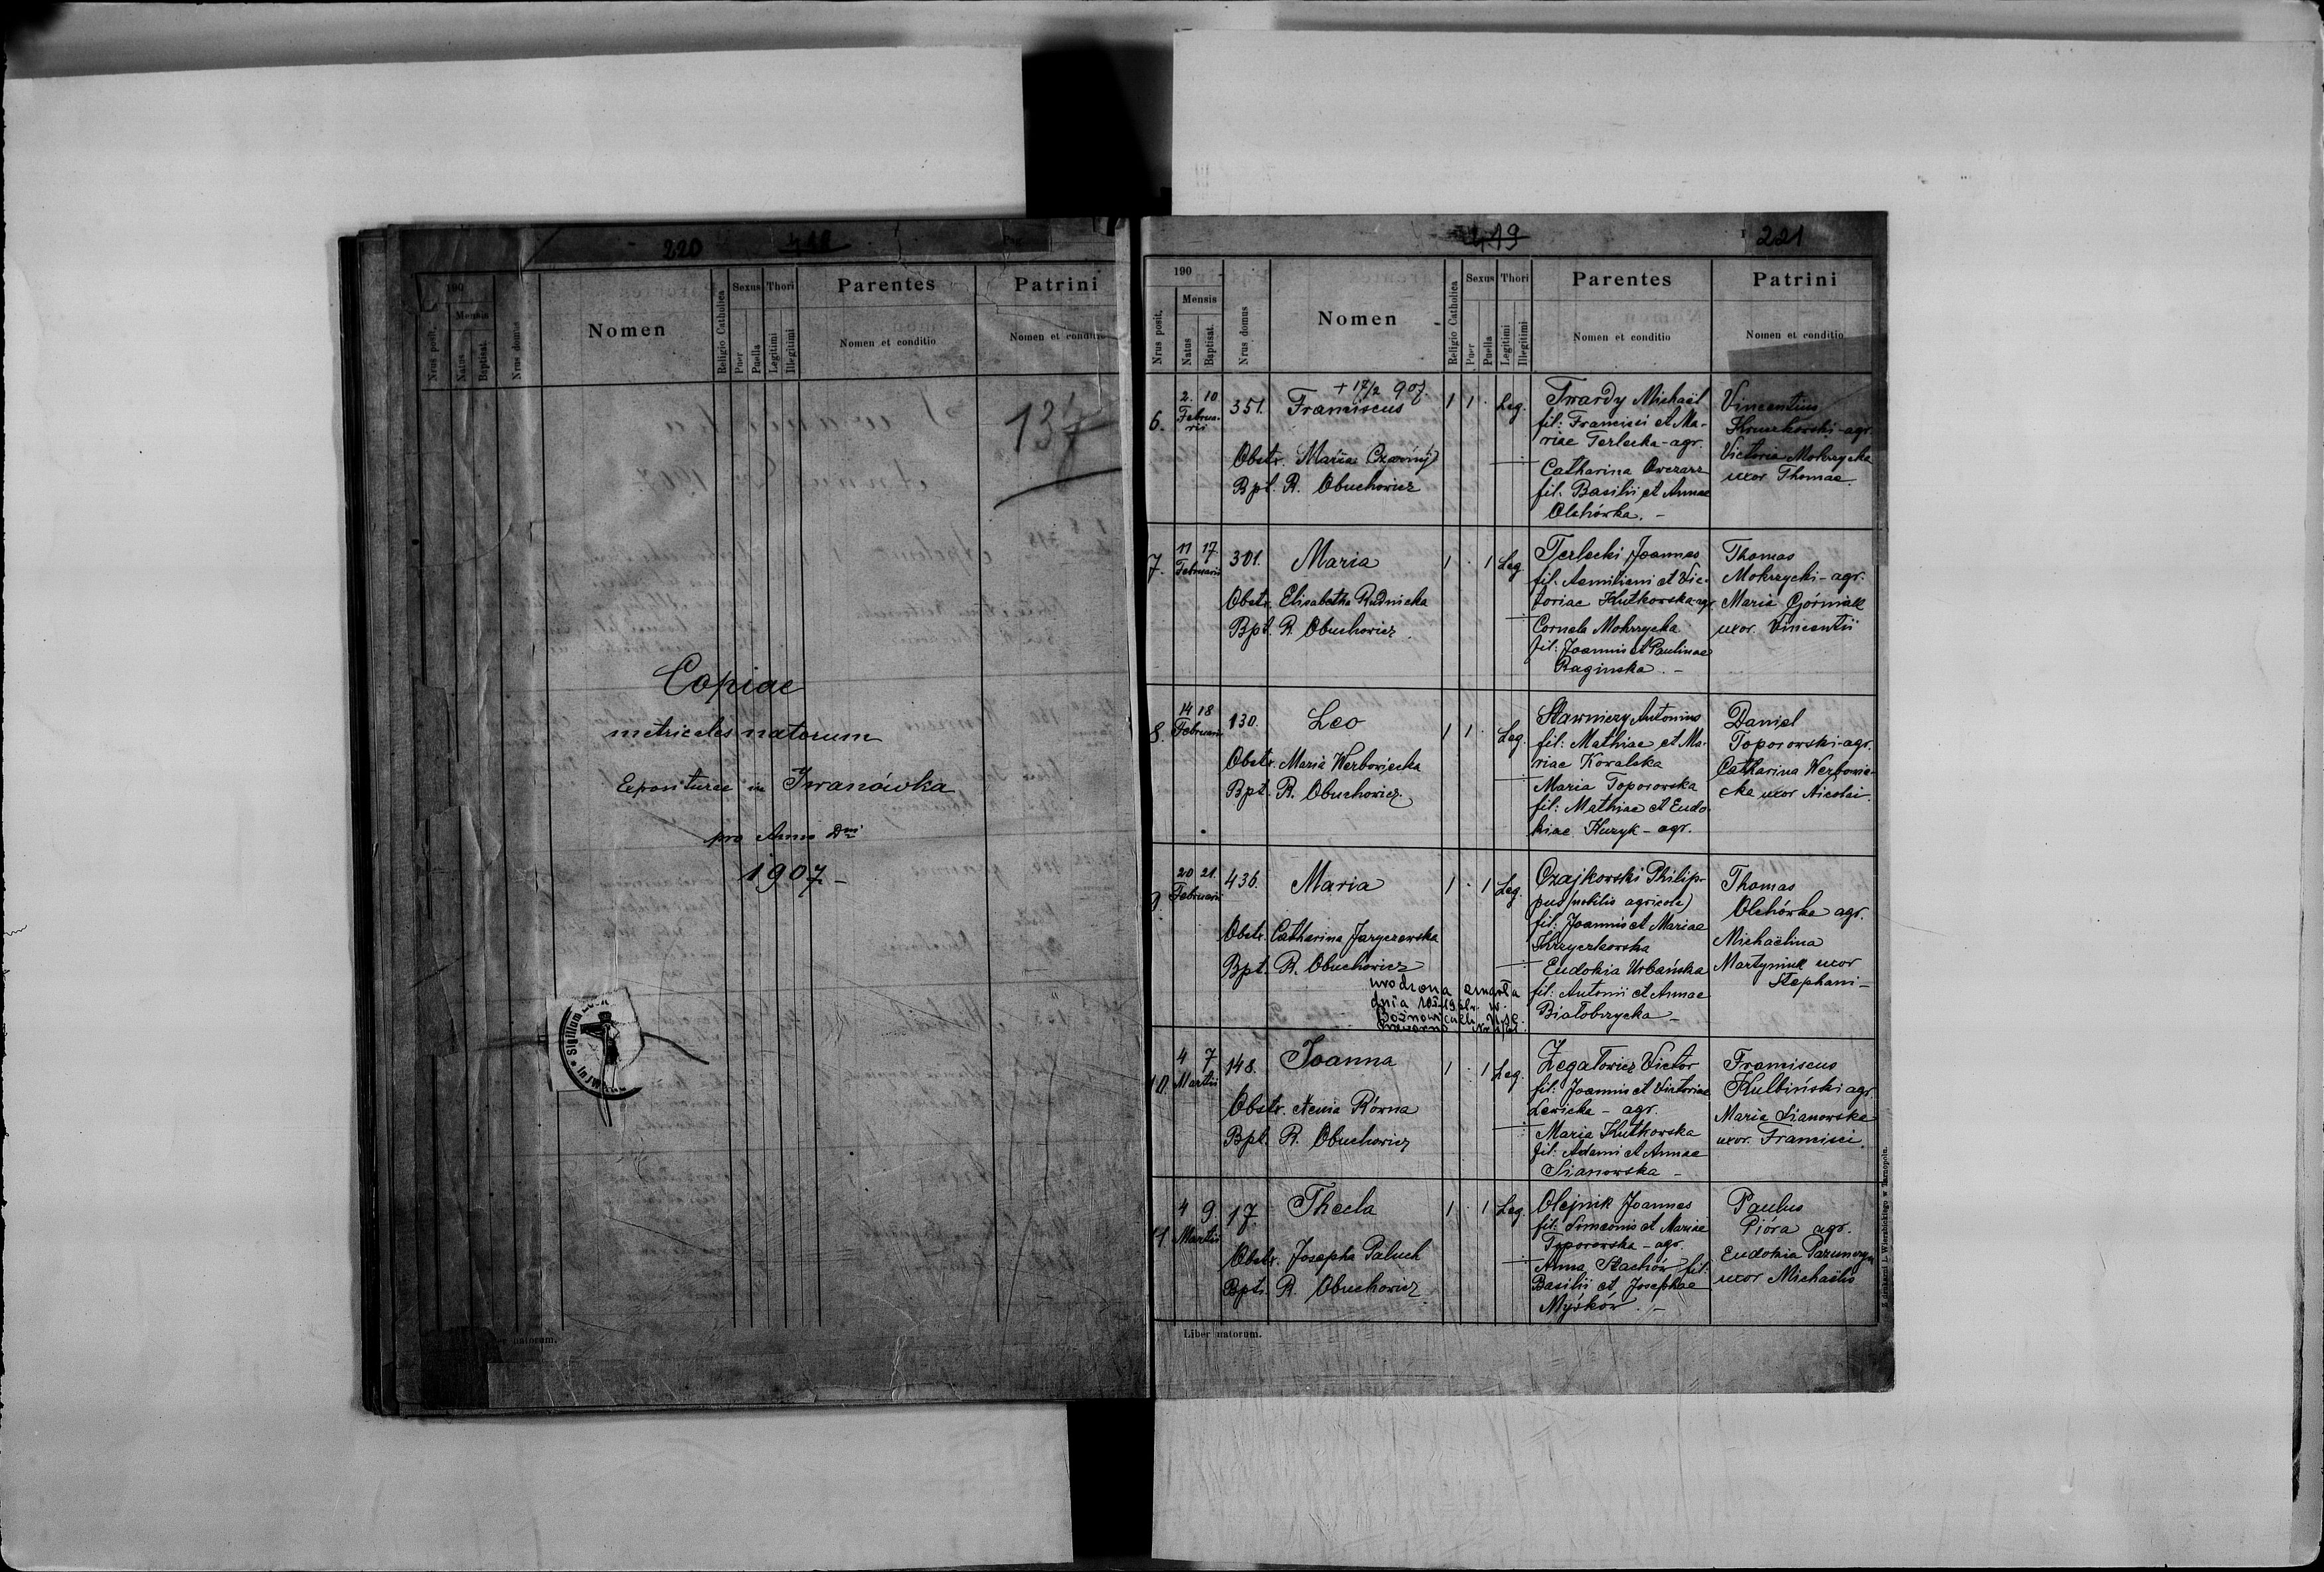 220
190
Mensis
Nrus posit.
Natus
Baptisat.
Nrus domus
Nomen
Religio Catholica
Sexus
Puer
Puella
Thori
Legitimi
Illegitimi
Parentes
Nomen et conditio
Patrini
Nomen et conditio
137
Copiae
metricales natorum
Expositurae in Iwanówka
pro Anno Dni
1907 -
Sigillum
419
221
190
Mensis
Nrus posit.
Natus
Baptisat.
Nrus domus
Nomen
Religio Catholica
Sexus
Puer
Puella
Thori
Legitimi
Illegitimi
Parentes
Nomen et conditio
Patrini
Nomen et conditio
6.
2. 10
Februa-
rii
351.
+ 17/2 907.
Franciscus
1 1 · Leg.
Obstr. Maria
Bpt. R. Obuchowicz
Twardy Michaël
fil: Francisci et Ma-
riae Terlecka - agr.
Catharina Owczarz
fil: Basilii et Annae
Olchówka. -
Vincentius
Kruczkowski - agr.
Victoria Mokrzycka
uxor Thomae.
7.
11 17
Februarii
301.
Maria
1 · 1 Leg
Obstr. Elisabetha Rudnicka
Bpt. R. Obuchowicz
Terlecki Joannes
fil. Aemiliani et Vic-
toriae Kutkowska agr
Cornela Mokrzycka
fil: Joannis et Paulinae
Raginska. -
Thomas
Mokrzycki - agr.
Maria Górniak
uxor. Vincentii
8.
14 18
Februarii
130.
Leo
1 1 · Leg.
Obstr. Maria Werbowiecka
Bpt. R. Obuchowicz.
Stawniczy Antonius
fil: Mathiae et Ma-
riae Kowalska
Maria Toporowska
fil: Mathiae et Eudo-
kiae Huzyk - agr.
Daniel
Toporowski - agr.
Catharina Werbowie-
cka uxor Nicolai.
9.
20 21.
Februarii
436.
Maria
1 · 1 Leg.
Obstr. Catharina Jaryczewska
Bpt. R. Obuchowicz
urodzona zmarła
dnia
Czajkowski Philip-
pus (nobilis agricola)
fil: Joannis et Mariae
Krzyczkowska
Eudokia Urbańska
fil: Antonii et Annae
Białobrzycka -
Thomas
Olchówka agr.
Michaëlina
Martyniuk uxor
Stephani -
10.
4 7
Martii
148.
Joanna
1 · 1 Leg.
Obstr. Xenia Równa
Bpt. R. Obuchowicz
Zegatowicz Victor
fil: Joannis et Victoriae
Lewicka - agr.
Maria Kutkowska
fil: Adami et Annae
Sianowska -
Franciscus
Kulbiński agr.
Maria Sianowska
uxor. Francisci.
11
4 9
Martii
17.
Thecla
1 · 1 Leg.
Obstr. Josepha Paluch
Bpt. R. Obuchowicz
Olejnik Joannes
fil: Simeonis et Mariae
Toporowska - agr.
Anna Stachów fil:
Basilii et Josephae
Myśków. -
Paulus
Pióra agr.
Eudokia
uxor Michaëlis
Liber natorum.
Z drukarni L. Wierzbickiego w Tarnopolu.